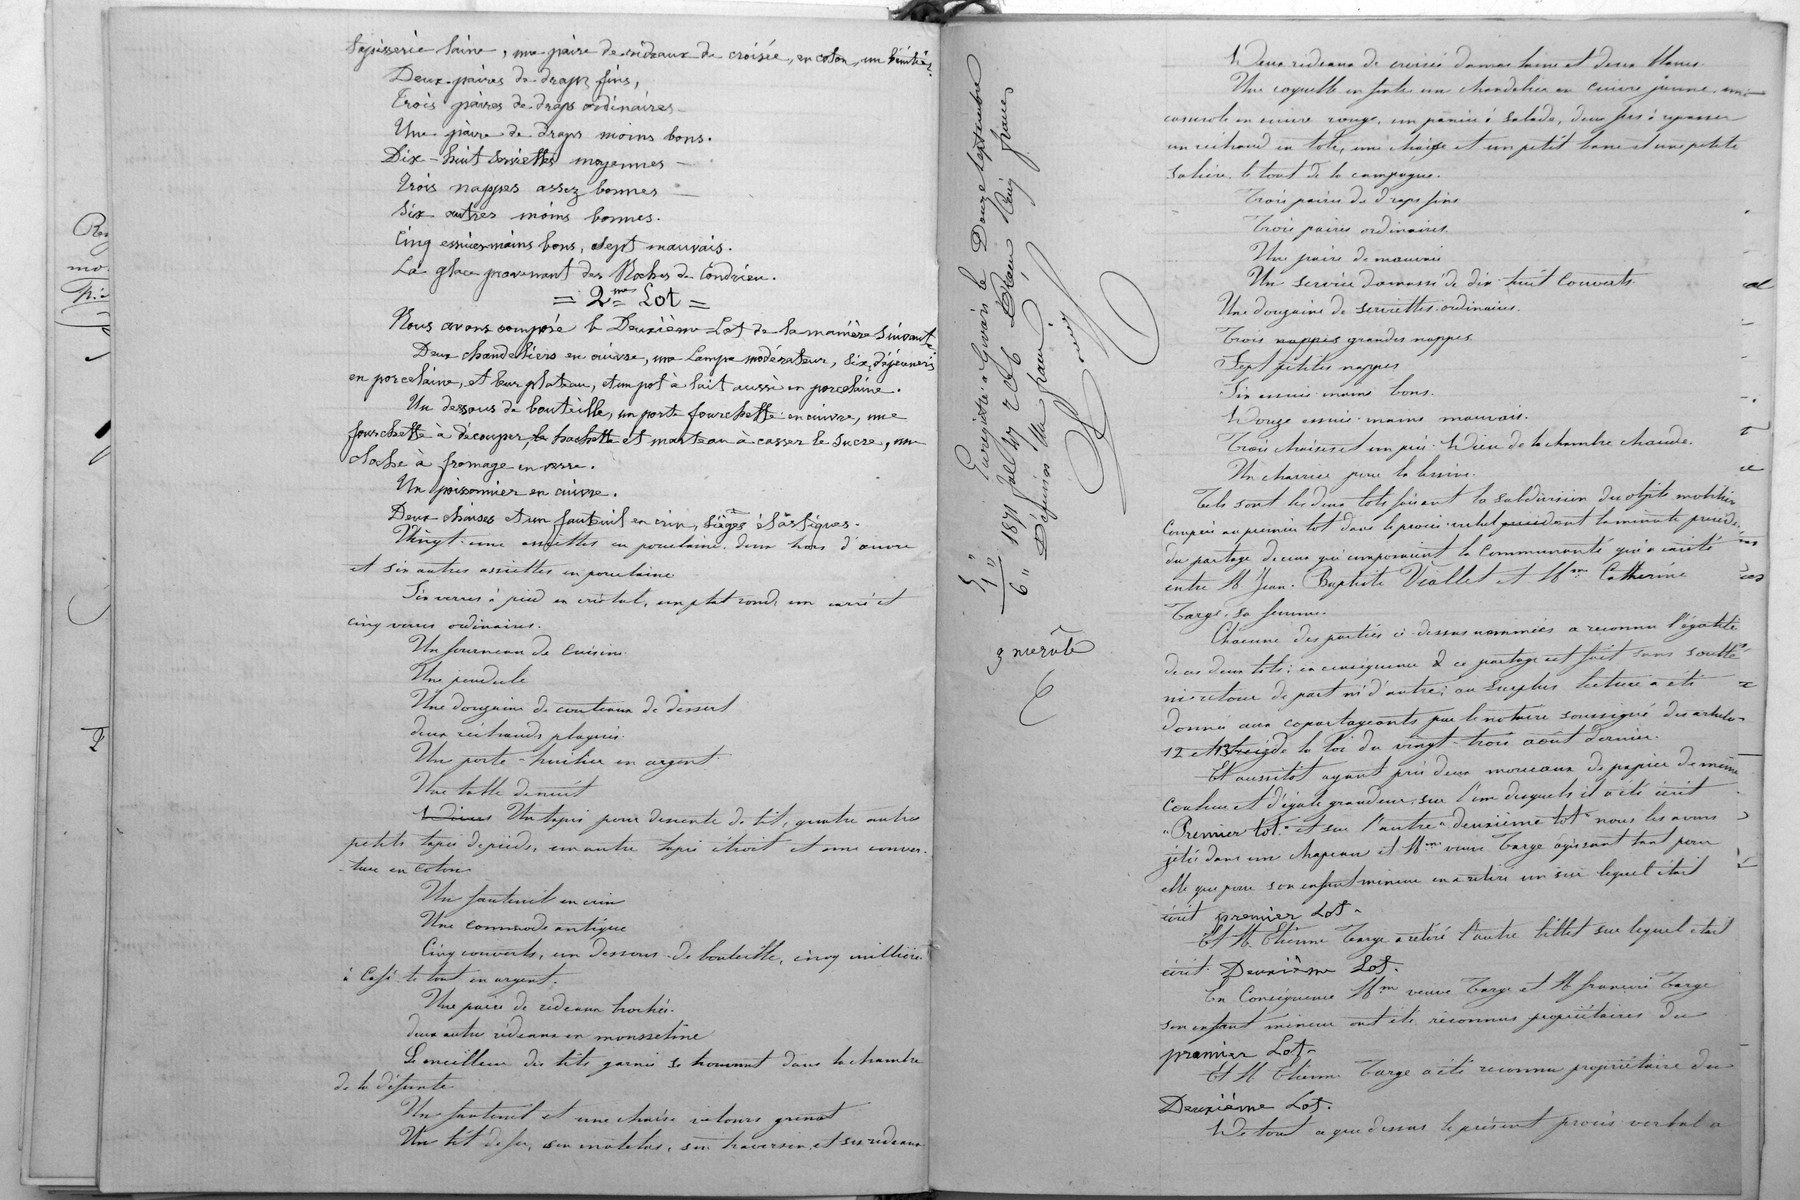 tapisserie laine, une paire de rideaux de croisée, en coton, un bénitier.
Deux paires de draps fins,
Trois paires de draps ordinaires
Une paire de draps moins bons.
Dix-huit serviettes moyennes —
Trois nappes assez bonnes —
Six autres moins bonnes.
Cinq essuiemains bons, sept mauvais.
La glace provenant des Roches de Condrieu.
= 2me Lot =
Nous avons composé le Deuxième Lot de la manière suivante
Deux chandeliers en cuivre, une Lampe modérateur, six déjeuners
en porcelaine, et leur plateau, et un pot à lait aussi en porcelaine.
Un dessous de bouteille, un porte fourchette en cuivre, une
fourchette à découper, la hachette et marteau à casser le sucre, une
cloche à fromage en verre.
Un poissonnier en cuivre.
Deux chaises et un fauteuil en crin, sièges élastiques.
Vingt-une assiettes en porcelaine, deux hors d'œuvre
et six autres assiettes en porcelaine
Six verres à pied en cristal, un plat rond, un carré et
cinq verres ordinaires.
Un fourneau de cuisine
Une pendule
Une douzaine de couteaux de dessert
deux réchauds plaqués.
Un porte-huilier en argent.
Une table de nuit
Un tapis pour descente de lit, quatre autres
petits tapis de pieds, un autre tapis étroit et une couver-
-ture en coton
Un fauteuil en crin
Une commode antique
Cinq couverts, un dessous de bouteille, cinq cuillères
à Café le tout en argent.
Une paire de rideaux brochés.
deux autres rideaux en mousseline
Le meilleur des lits garnis se trouvant dans la chambre
de la défunte.
Un fauteuil et une chaise velours grenat
Un lit de fer, son matelas, son traversin, et ses rideaux
Enregistré à Givors le Douze septembre
1871
Reçu
francs
3 me rôle
Deux rideaux de croisée damas laine et deux blancs.
Une coquille en fonte un chandelier en cuivre jaune, une
casserole en cuivre rouge, un panier à salade, deux fers à repasser
un réchaud en tôle, une chaise et un petit banc et une petite
salière, le tout de la campagne.
Trois paires de draps fins
Trois paires ordinaires.
Une paire de mauvais
Un service damassé de dix-huit Couverts.
Une douzaine de serviettes ordinaires.
Trois nappes grandes nappes.
Sept petites nappes
Six essuie-mains bons.
Douze essuie-mains mauvais.
Trois chaises et un prie-Dieu de la chambre chaude.
Un charrier pour la lessive.
Tels sont les deux lots faisant la subdivision des objets mobiliers
Compris au premier lot dans le procès-verbal précédant la minute
du partage de ceux qui composaient la Communauté qui a existé
entre M. Jean-Baptiste Viallet et Mme Catherine
Targe sa femme.
Chacune des parties ci-dessus nommées a reconnu l'égalité
de ces deux lots; en conséquence ce partage est fait sans soulte
ni retour de part ni d'autre; au surplus lecture a été
donné aux copartageants par le notaire soussigné des articles
12 et 13 de la loi du vingt-trois août dernier.
Et aussitôt ayant pris deux morceaux de papier de même
Couleur et d'égale grandeur, sur l'un desquels il a été écrit
"Premier lot" et sur l'autre "deuxième lot" nous les avons
jetés dans un chapeau et Mme veuve Targe agissant tant pour
elle que pour son enfant mineur en a retiré un sur lequel était
écrit premier Lot.
Et M. Etienne Targe a retiré l'autre billet sur lequel était
écrit Deuxième Lot.
En Conséquence Mme veuve Targe et M. Targe
son enfant mineur ont été reconnus propriétaires du
premier Lot.
Et M. Etienne Targe a été reconnu propriétaire du
Deuxième Lot.
De tout ce que dessus le présent procès verbal a